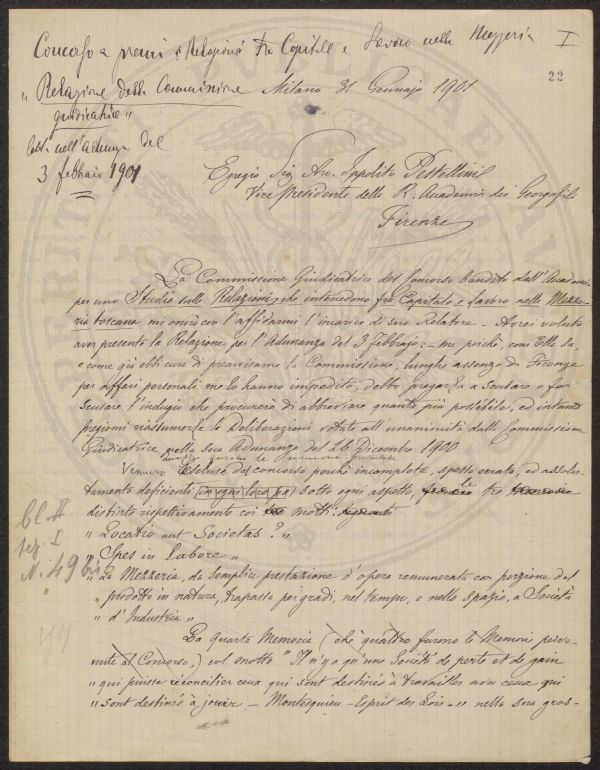 Concorso a premi s. Relazioni tra Capitale e Lavoro nella Mezzeria I
22
"Relazione della Commissione
giudicatrice"
Milano 31 Gennajo 1901
letta nell'adunanza del
3 febbraio 1901
Egregio Sig. Avv. Ippolito Pestellini
Vice Presidente della R. Accademia dei Georgofili
Firenze
La Commissione Giudicatrice del Concorso bandito dall'Accademia
per uno Studio sulle Relazioni che intercedono fra Capitale e Lavoro nella Mezze-
ria toscana mi onorò con l'affidarmi l'incarico di suo Relatore. Avrei voluto
aver presentato la Relazione per l'Adunanza del 3 Febbrajo, ma poichè, com'Ella sa,
e come già ebbi cura di preavvisarne la Commissione, lunghe assenze da Firenze
per affari personali me lo hanno impedito, debbo pregarla a scusare e far
scusare l'indugio che procurerò di abbreviare quanto più possibile, ed intanto
pregiomi riassumerle le Deliberazioni votate all'unanimità dalla Commissione
Giudicatrice nella sua Adunanza del 26 Dicembre 1900
furono le memorie
Vennero Escluse dal concorso perchè incomplete, spesso errate, ed assolu-
tamente deficienti in ogni loro parte sotto ogni aspetto, le tre
distinte rispettivamente coi motti:
" Locatio aut Societas? "
" Spes in Labore "
" La Mezzeria, da semplice prestazione d'opera remunerata con porzione del
" prodotto in natura, trapassa per gradi, nel tempo, e nello spazio, a Società
" d'Industria "
Cl. II
sez. I
N. 49 bis
La quarta Memoria (chè quattro furono le Memorie perve-
nute al Concorso,) col motto "Il n'y a qu'une Société de perte et de gain
" qui puisse réconcilier ceux qui sont destinés à travailler avec ceux qui
" sont destinés à jouir — Montesquieu — Esprit des Lois " nella sua gros-